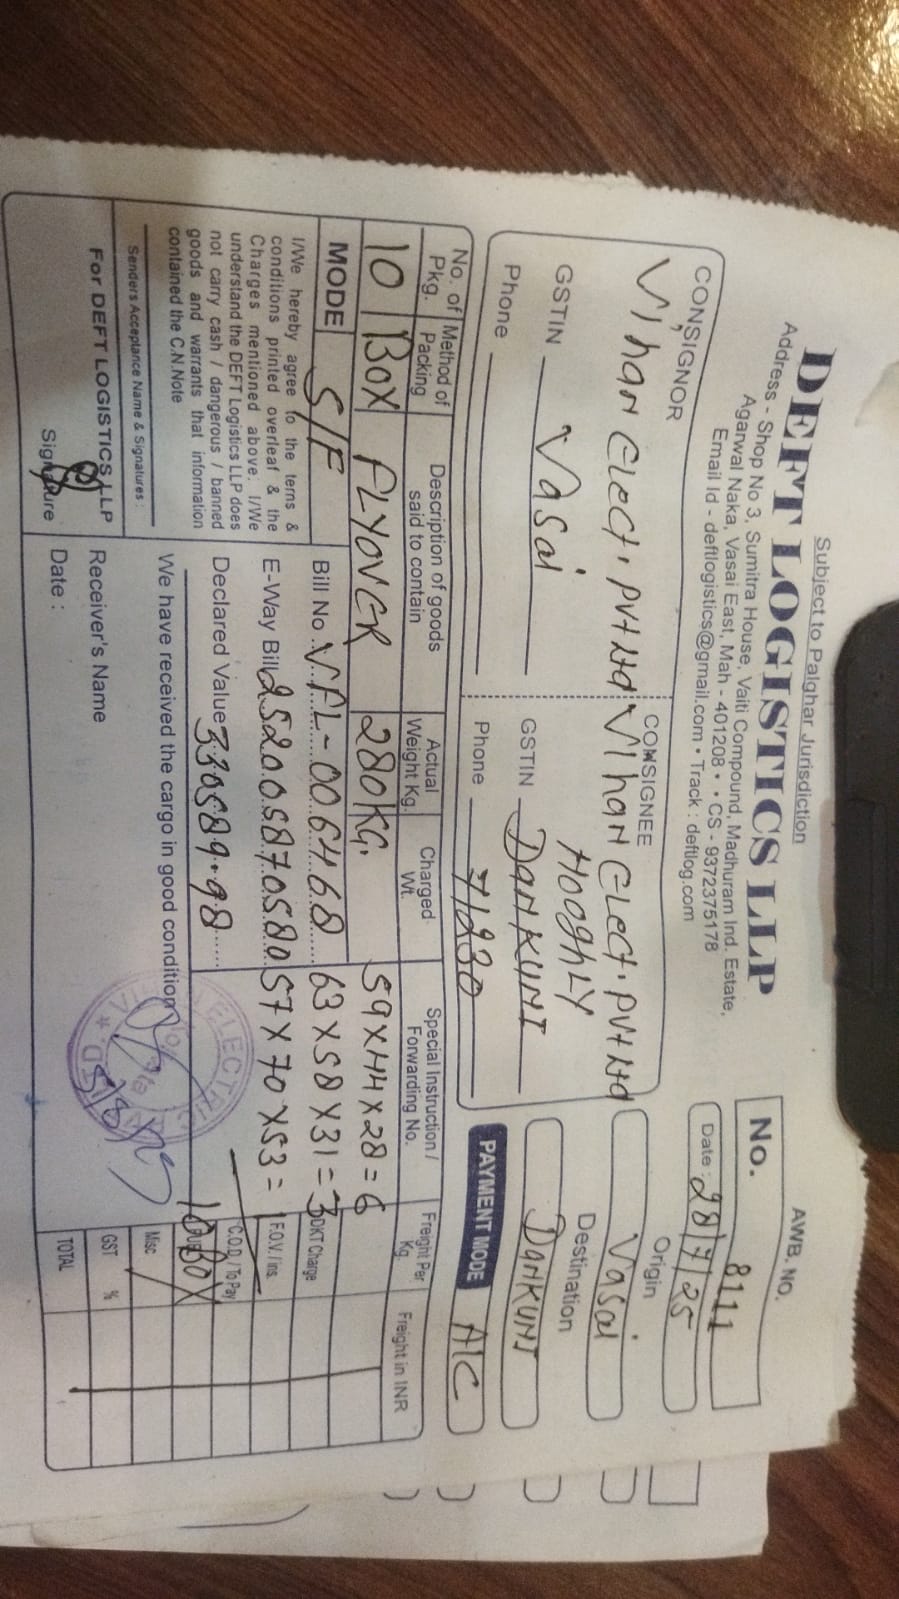 Subject to Palghar Jurisdiction
DEFT LOGISTICS LLP
Address - Shop No 3, Sumitra House, Vaiti Compound, Madhuram Ind. Estate,
Agarwal Naka, Vasai East, Mah - 401208 • • CS - 9372375178
Email Id - deftlogistics@gmail.com • Track : deftlog.com
AWB. NO.
No. 8111
Date : 28/7/25
CONSIGNOR
Vihan Elect. Pvt Ltd
GSTIN Vasai
Phone
CONSIGNEE
Vihan Elect. Pvt Ltd
HOOGHLY
GSTIN DANKUNI
Phone 71230
Origin
Vasai
Destination
DANKUNI
PAYMENT MODE A/C
No. of Pkg. Method of Packing Description of goods said to contain Actual Weight Kg. Charged Wt. Special Instruction / Forwarding No. Freight Per Kg. Freight in INR
10 BOX FLYOVER 280KG. 59 X 44 X 28 = 6
MODE S/F Bill No. VFL-006468 63 X 58 X 31 = 3 DKT Charge
E-Way Bill 252005870580 57 X 70 X 53 = 1 F.O.V. / Ins.
Declared Value 330589.98 C.O.D. / To Pay
10 BOX
I/We hereby agree to the terms &
conditions printed overleaf & the
Charges mentioned above. I/We
understand the DEFT Logistics LLP does
not carry cash / dangerous / banned
goods and warrants that information
contained the C.N.Note
We have received the cargo in good condition
Misc.
Senders Acceptance Name & Signatures :
For DEFT LOGISTICS LLP
Receiver's Name
GST %
Signature
Date :
TOTAL